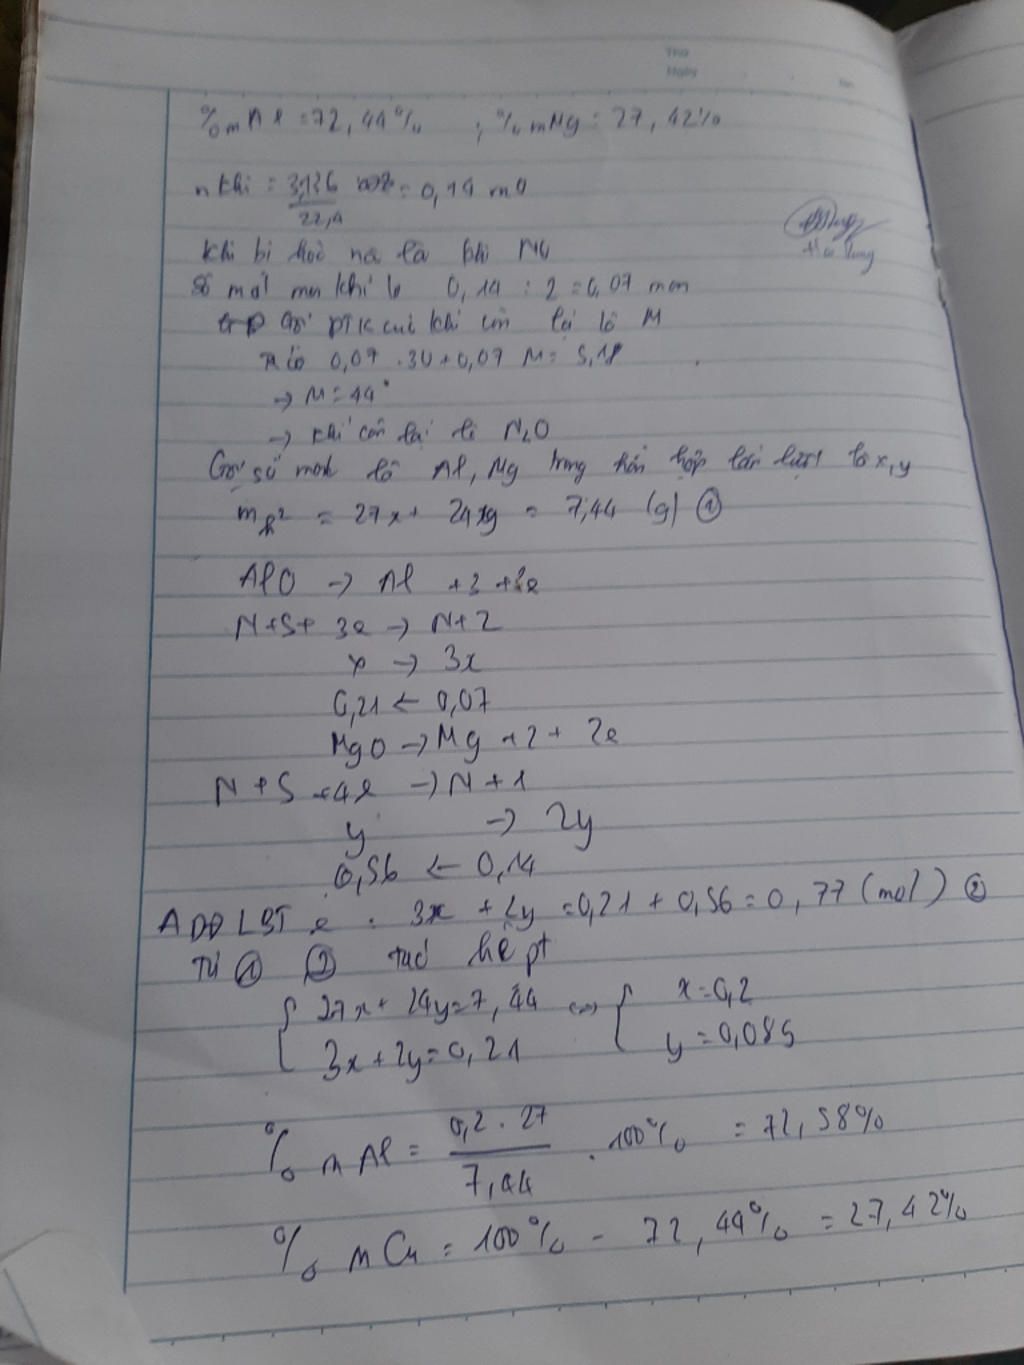 Thứ
Ngày
No.
% mAl = 72,44% ; % mMg = 27,42%
n khí = 3,136 / 22,4 = 0,14 mo
Khí bị hoá na là khí NO
Số mol mỗi khí là 0,14 : 2 = 0,07 mon
Gọi PTK của khí còn lại là M
Ta có 0,07 . 30 + 0,07 M = 5,18
→ M = 44
→ Khí còn lại là N2O
Gọi số mol là Al, Mg trong hỗn hợp lần lượt là x, y
m h2 = 27x + 24y = 7,44 (g) ①
Al0 → Al +3 + 3e
N+5 + 3e → N+2
x → 3x
0,21 ← 0,07
Mg0 → Mg +2 + 2e
N+5 +4e → N+1
y → 2y
0,56 ← 0,14
ADĐLBT e : 3x + 2y = 0,21 + 0,56 = 0,77 (mol) ②
Từ ① ② hệ pt
{ 27x + 24y = 7,44 ⇔ { x = 0,2
3x + 2y = 0,21 y = 0,085
% mAl = 0,2 . 27 / 7,44 . 100% = 72,58%
% mCu = 100% - 72,44% = 27,42%